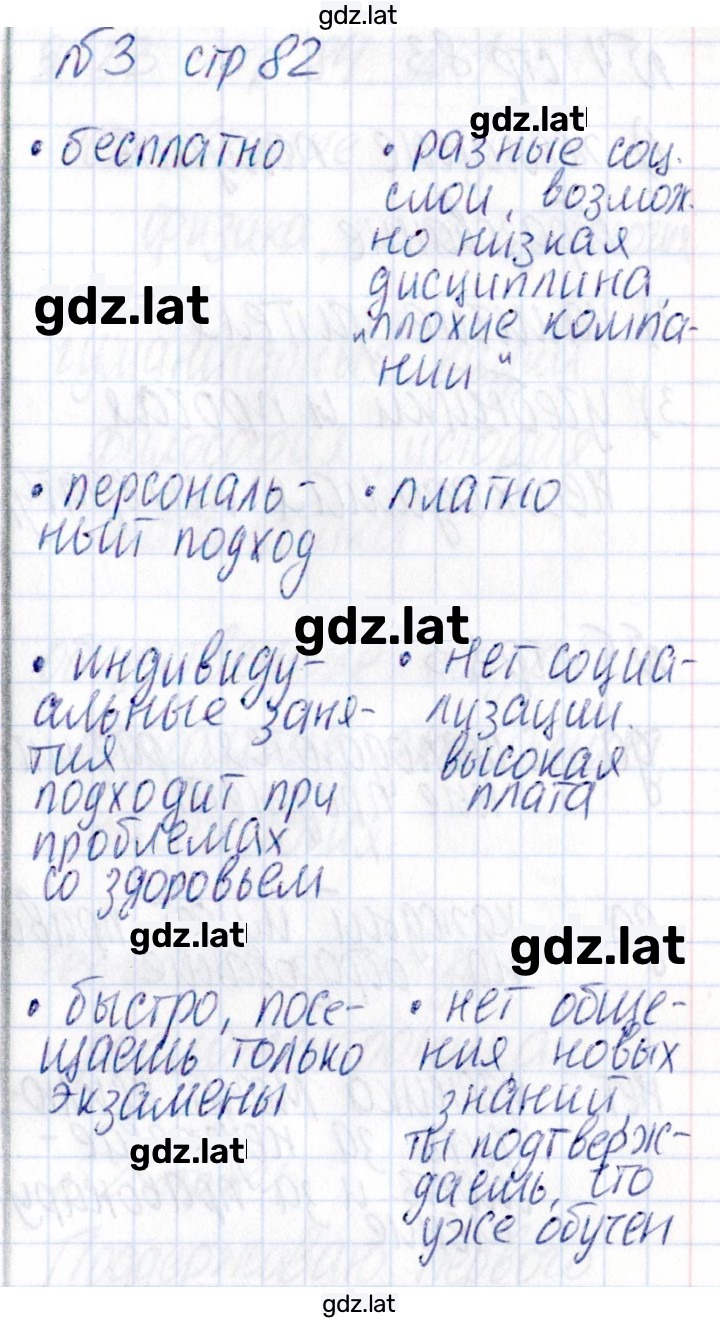 gdz.lat
№3 стр 82
gdz.lat
• бесплатно
• разные соц.
слои, возмож.
но низкая
дисциплина,
„плохие компа-
нии"
gdz.lat
• персональ-
ный подход
• платно
gdz.lat
• индивиду-
альные заня-
тия
подходит при
проблемах
со здоровьем
• нет социа-
лизации.
высокая
плата
gdz.lat
gdz.lat
• быстро, посе-
щаешь только
экзамены
• нет обще-
ния, новых
знаний,
ты подтверж-
даешь, что
уже обучен
gdz.lat
gdz.lat